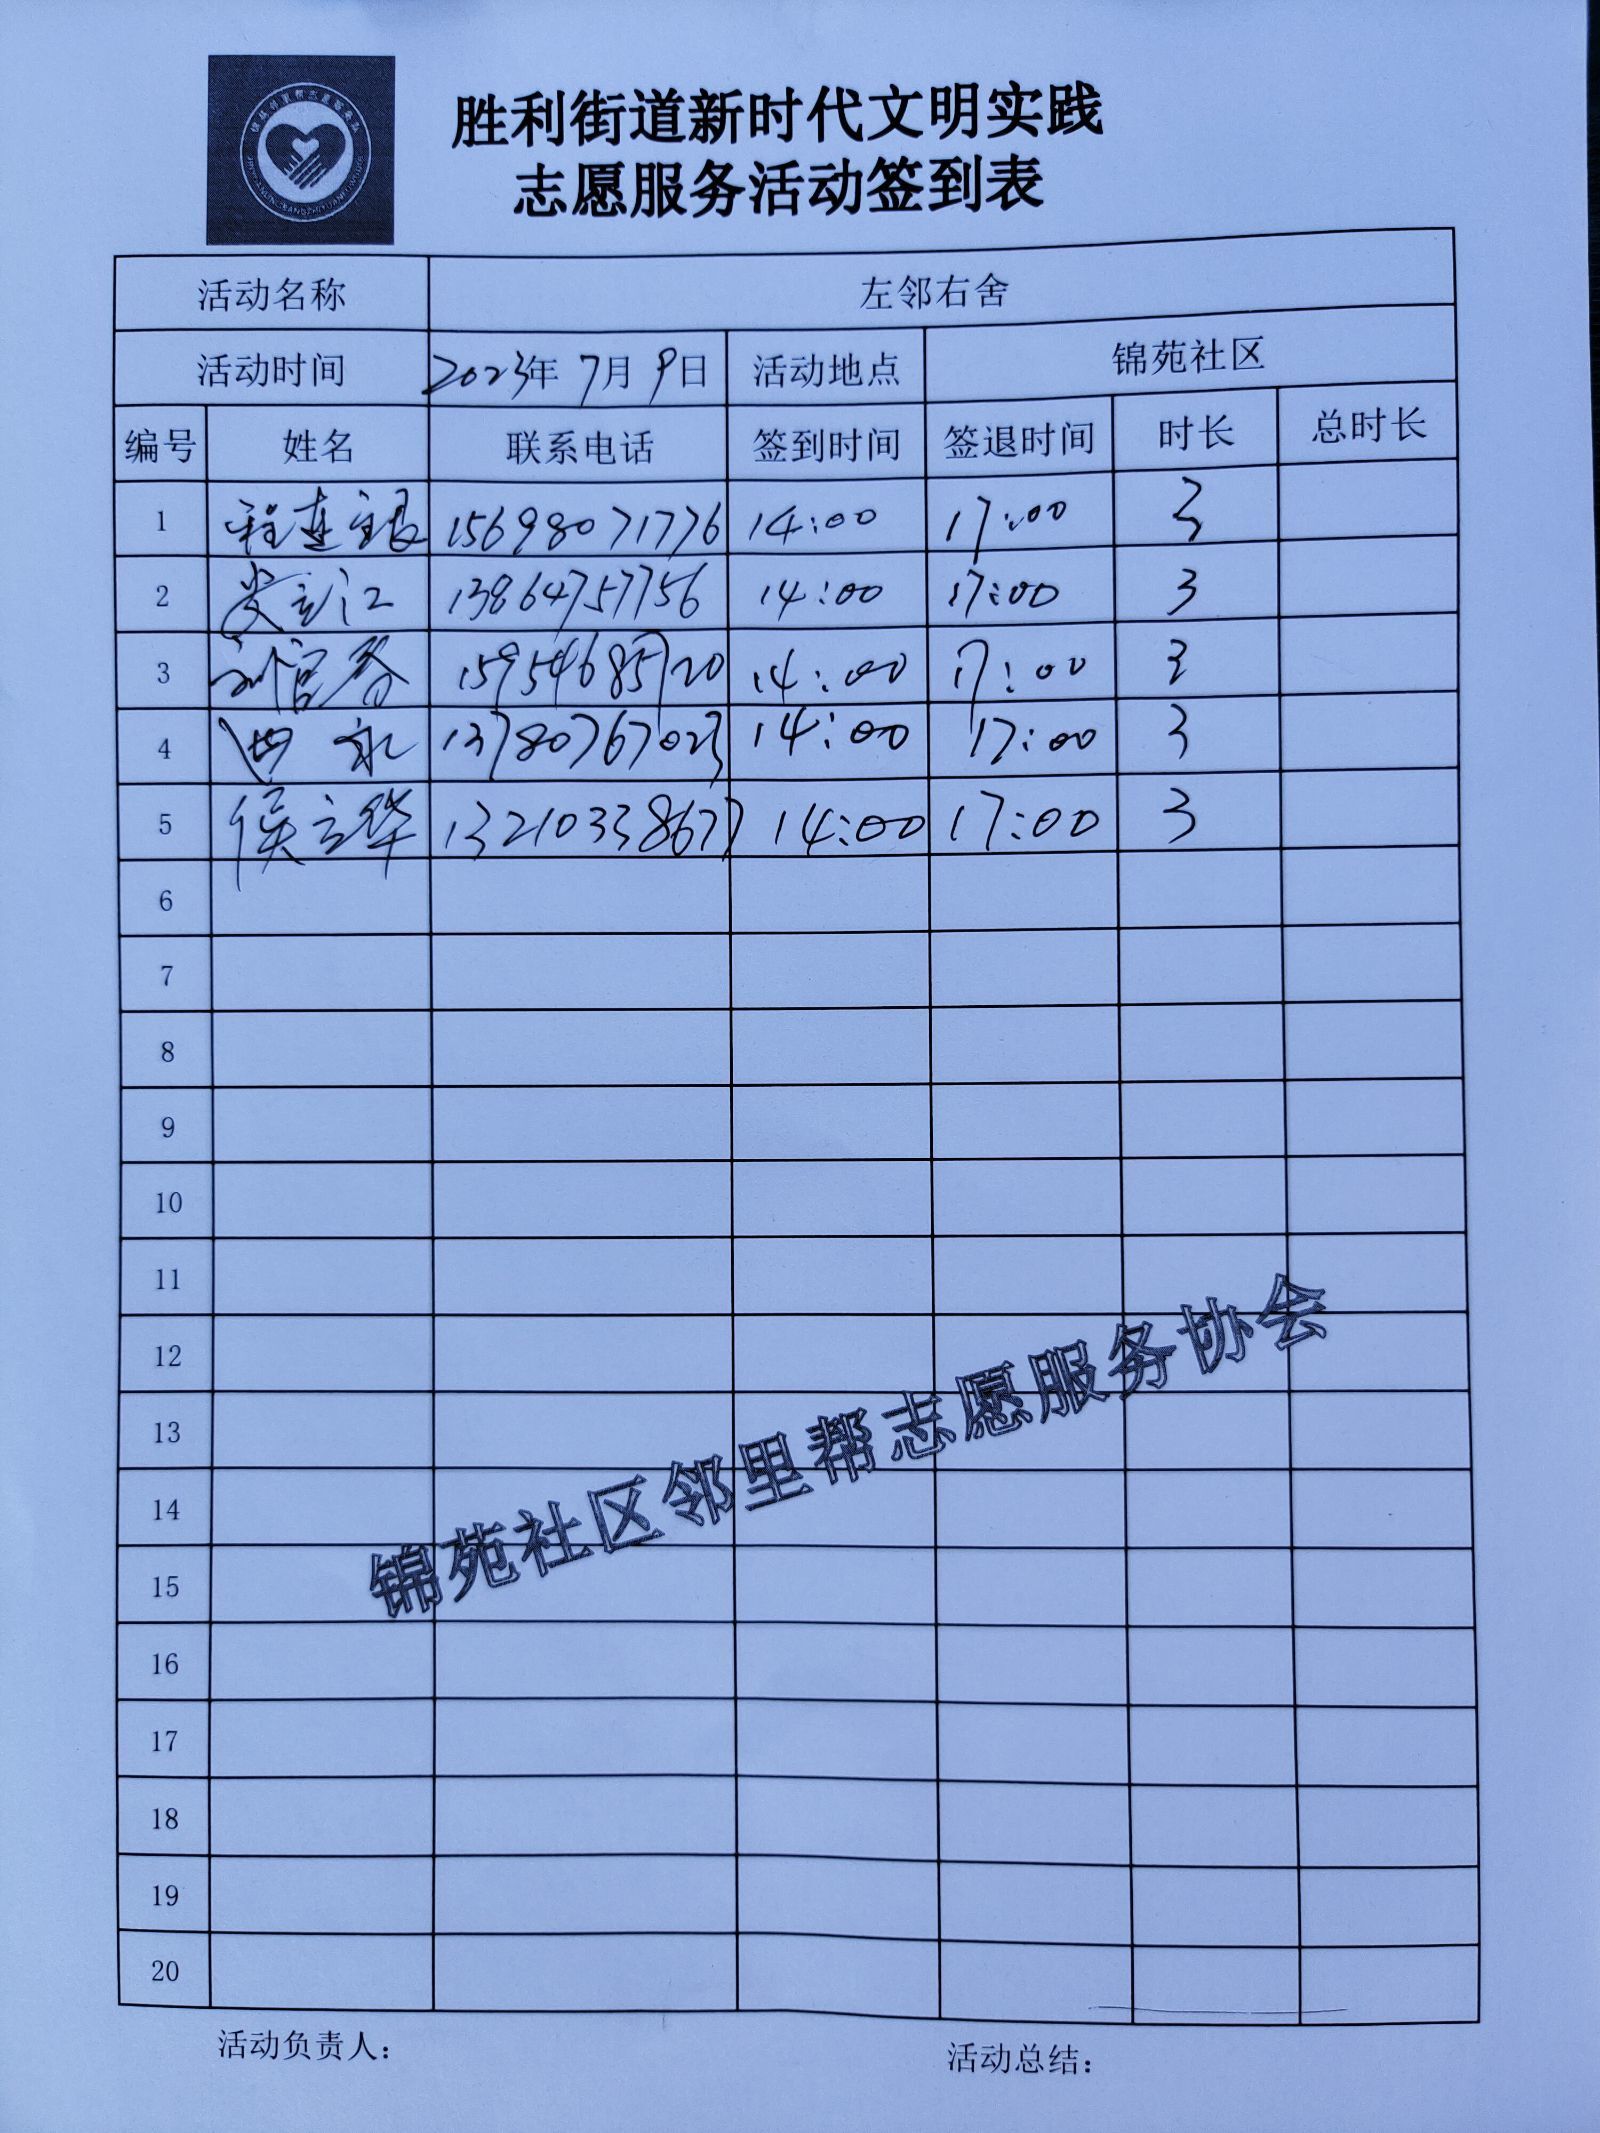 胜利街道新时代文明实践
志愿服务活动签到表
活动名称 左邻右舍
活动时间 2023年 7月 9日 活动地点 锦苑社区
编号 姓名 联系电话 签到时间 签退时间 时长 总时长
1 15698071776 14:00 17:00 3
2 13864757756 14:00 17:00 3
3 15954685720 14:00 17:00 3
4 13780767023 14:00 17:00 3
5 侯立华 13210338677 14:00 17:00 3
6
7
8
9
10
11
12
13
14
15
16
17
18
19
20
锦苑社区邻里帮志愿服务协会
活动负责人： 活动总结：